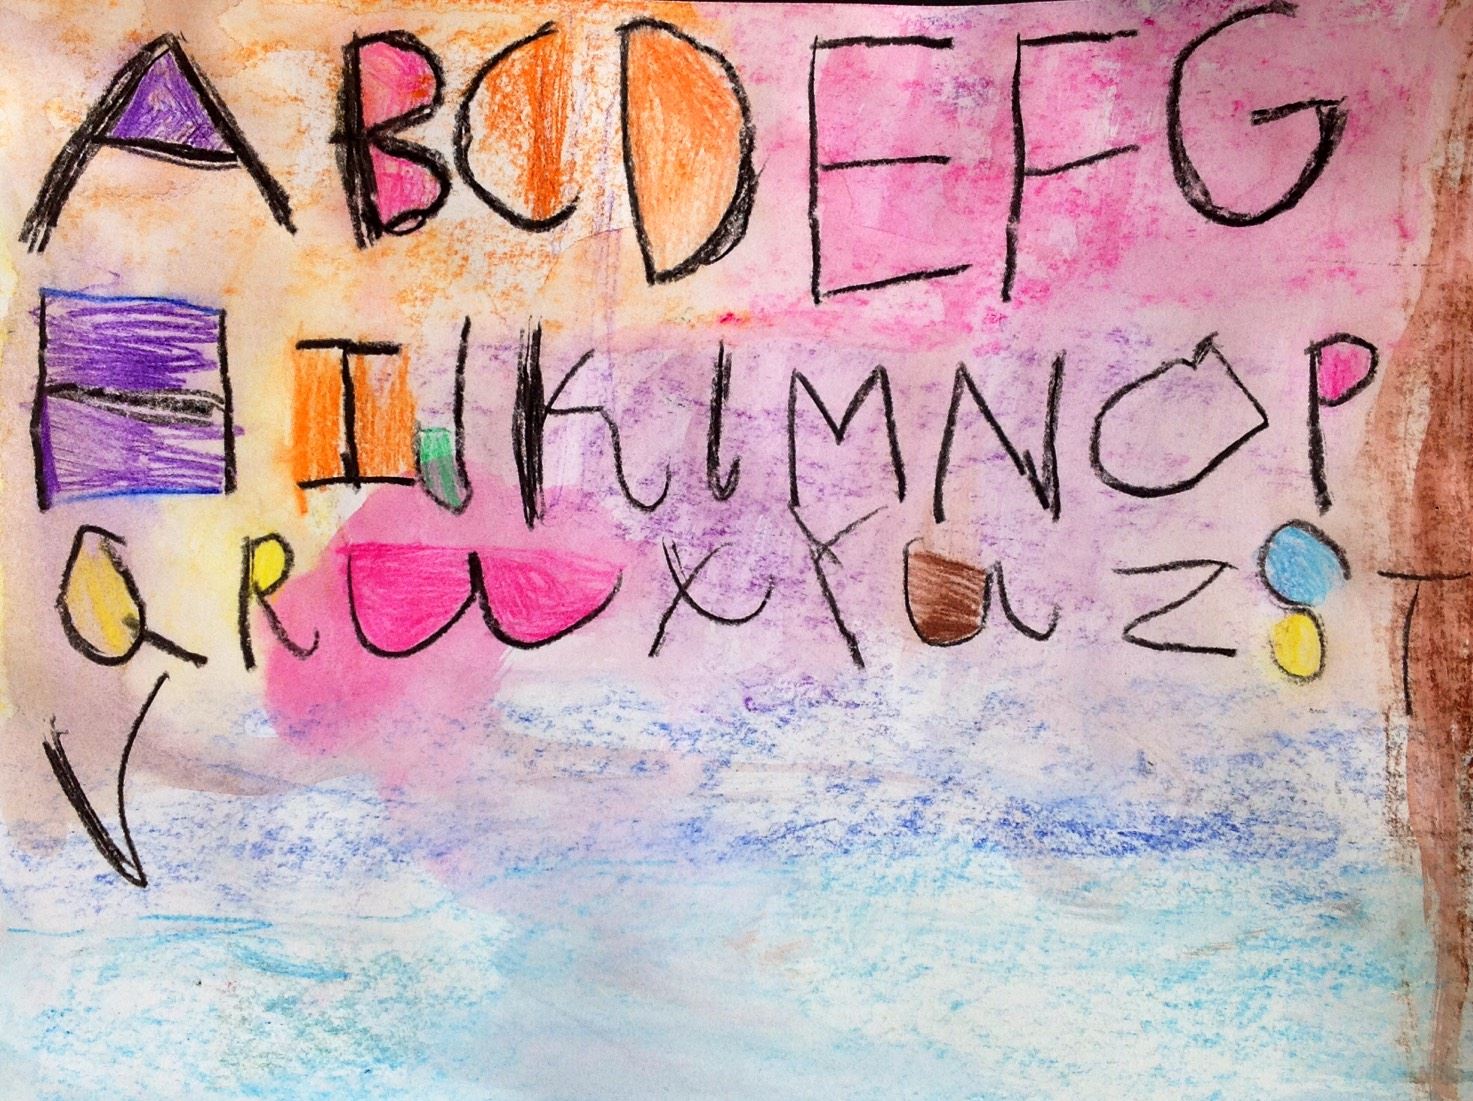 ABCDEFG
HIJKLMNOP
QRWXYUZST
V